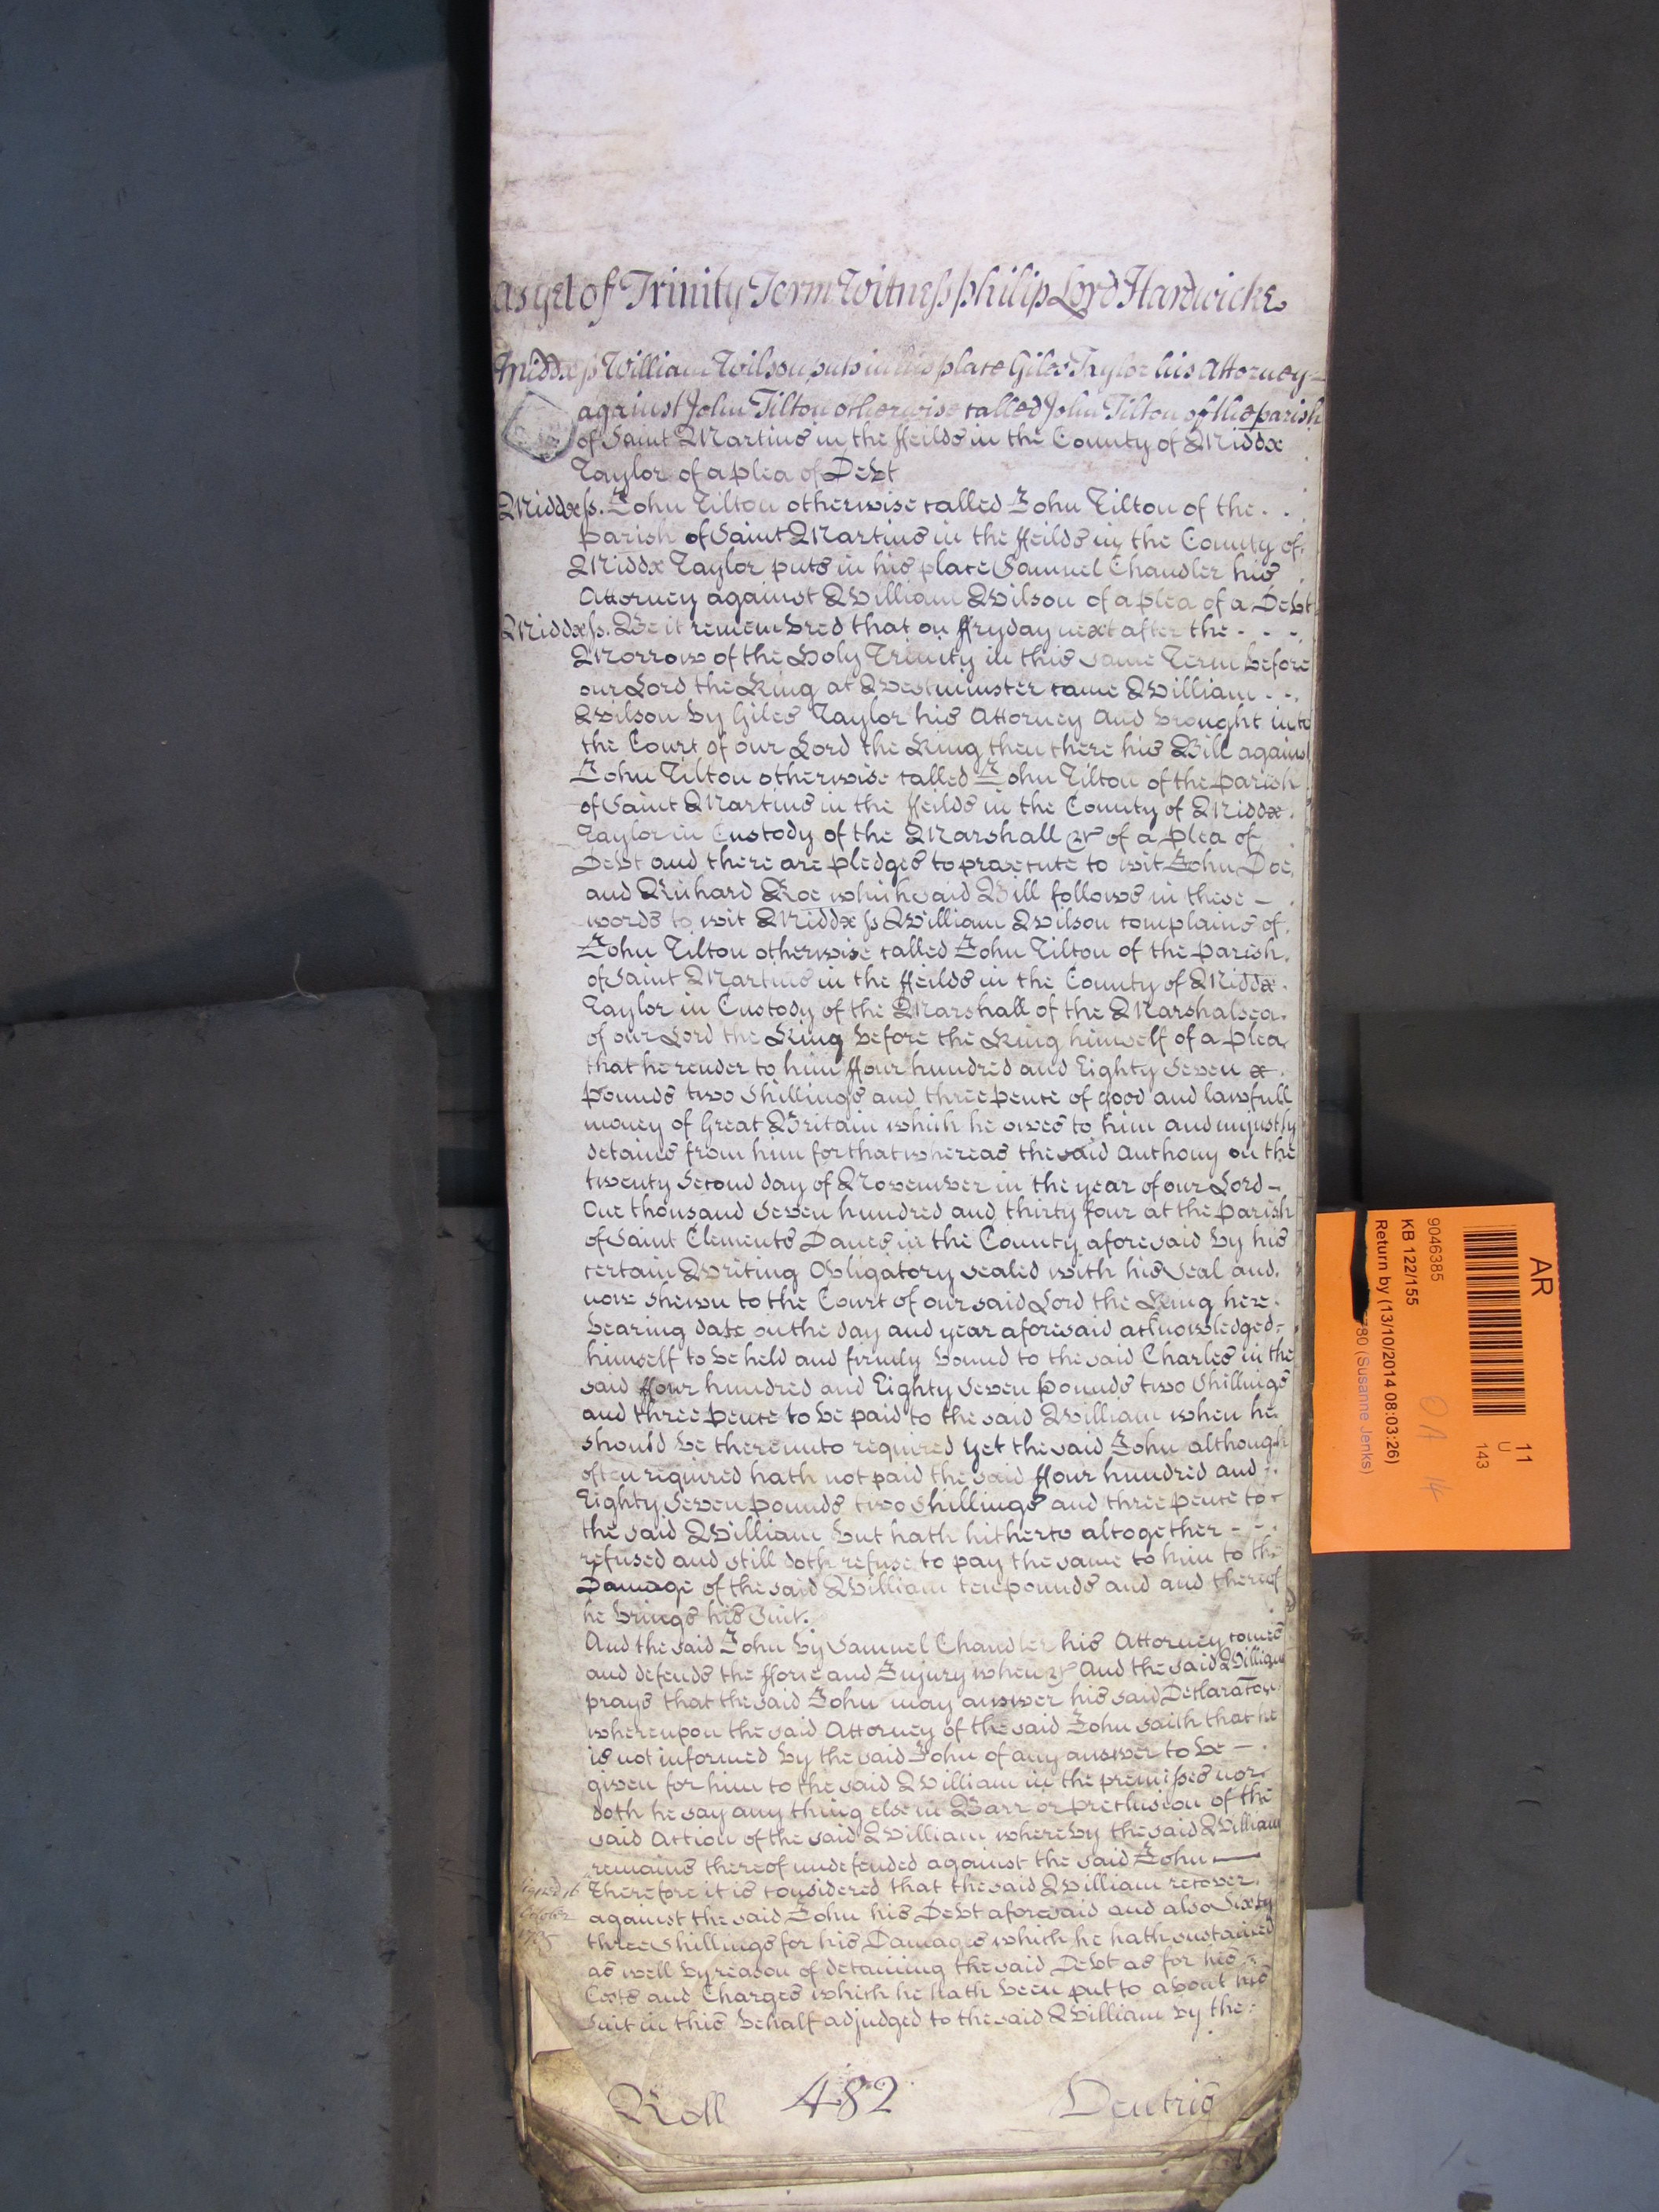 as yet of Trinity Term Witness philip Lord Hardwicke
Middx ss William Wilson puts in his place Giles Taylor his Attorney
against John Tilton otherwise called John Tilton of the parish
of Saint Martins in the ffeilds in the County of Middx
Taylor of a plea of Debt
Middx ss. John Tilton otherwise called John Tilton of the
parish of Saint Martins in the ffeilds in the County of
Middx Taylor puts in his place Samuel Chandler his
Attorney against William Wilson of a plea of a Debt
Middx ss. Be it remembred that on ffryday next after the
Morrow of the Holy Trinity in this same Term before
our Lord the King at Westminster came William
Wilson by Giles Taylor his Attorney And brought into
the Court of our Lord the King then there his Bill against
John Tilton otherwise called John Tilton of the parish
of Saint Martins in the ffeilds in the County of Middx
Taylor in Custody of the Marshall &c of a plea of
Debt and there are pledges to prosecute to wit John Doe
and Richard Roe which said Bill follows in these
words to wit Middx ss William Wilson complains of
John Tilton otherwise called John Tilton of the parish
of Saint Martins in the ffeilds in the County of Middx
Taylor in Custody of the Marshall of the Marshalsea
of our Lord the King before the King himself of a plea
that he render to him ffour hundred and Eighty Seven
pounds two Shillings and three pence of good and lawfull
money of Great Britain which he owes to him and unjustly
detains from him for that whereas the said Anthony on the
twenty Second day of November in the year of our Lord
One thousand Seven hundred and thirty four at the parish
of Saint Clements Danes in the County aforesaid by his
certain Writing Obligatory sealed with his Seal and
now shewn to the Court of our said Lord the King here
bearing date on the day and year aforesaid acknowledged
himself to be held and firmly bound to the said Charles in the
said ffour hundred and Eighty Seven pounds two Shillings
and three pence to be paid to the said William when he
should be thereunto required yet the said John although
often required hath not paid the said ffour hundred and
Eighty Seven pounds two Shillings and three pence to
the said William but hath hitherto altogether
refused and still doth refuse to pay the same to him to the
Damage of the said William ten pounds and and thereof
he brings his Suit.
And the said John by Samuel Chandler his Attorney comes
and defends the fforce and Injury when &c And the said William
prays that the said John may answer his said Declaration
whereupon the said Attorney of the said John saith that he
is not informed by the said John of any answer to be
given for him to the said William in the premisses nor
doth he say any thing else in Barr or preclusion of the
said Action of the said William whereby the said William
remains thereof undefended against the said John
Therefore it is considered that the said William recover
against the said John his Debt aforesaid and also Sixty
three Shillings for his Damages which he hath sustained
as well by reason of detaining the said Debt as for his
Costs and Charges which he hath been put to about his
Suit in this behalf adjudged to the said William by the
October
1735
Roll 482 Dentris
AR
11
U
143
9046385
KB 122/155
Return by (13/10/2014 08:03:26)
780 (Susanne Jenks)